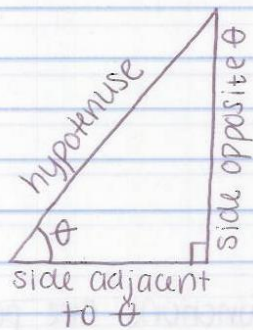 hypotenuse
side opposite θ
θ
side adjacent
to θ